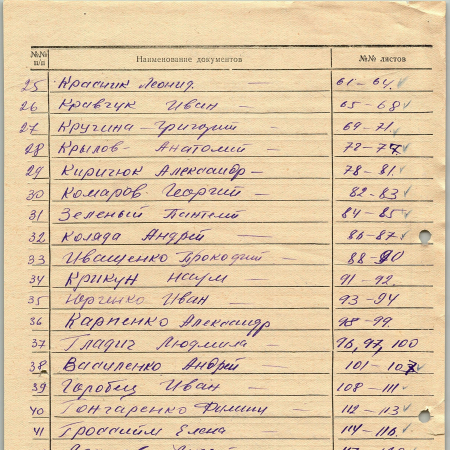 №№ п/п Наименование документов №№ листов
25 Красник Леонид — 61-64
26 Кравчук Иван — 65-68
27 Кручина Григорий — 69-71
28 Крылов Анатолий — 72-77
29 Киричюк Александр — 78-81
30 Комаров Георгий — 82-83
31 Зеленый Пантелий 84-85
32 Колада Андрей — 86-87
33 Иващенко Прокофий — 88-90
34 Крикун Наум — 91-92
35 Юрченко Иван — 93-94
36 Карпенко Александр 98-99
37 Гладич Людмила — 96, 97, 100
38 Василенко Андрей — 101-107
39 Горобец Иван — 108-111
40 Гончаренко Филипп — 112-113
41 Елена — 114-116